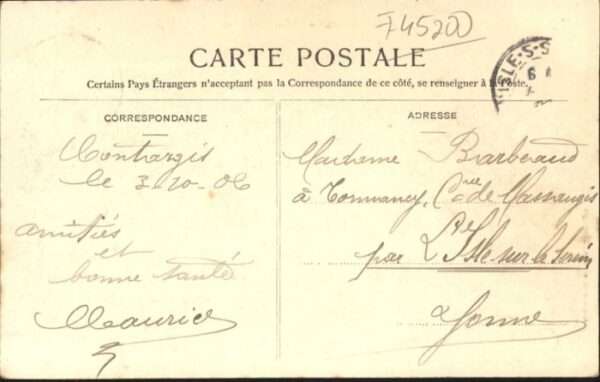 745200
CARTE POSTALE
Certains Pays Étrangers n'acceptant pas la Correspondance de ce côté, se renseigner à la Poste.
L'ISLE-S-S
6
CORRESPONDANCE
Montargis
le 3-10-06
amitiés
et
bonne santé
Maurice
ADRESSE
Madame Barbeaud
à Tormancy, Cne de Massangis
par L'Isle sur le Serein
Yonne